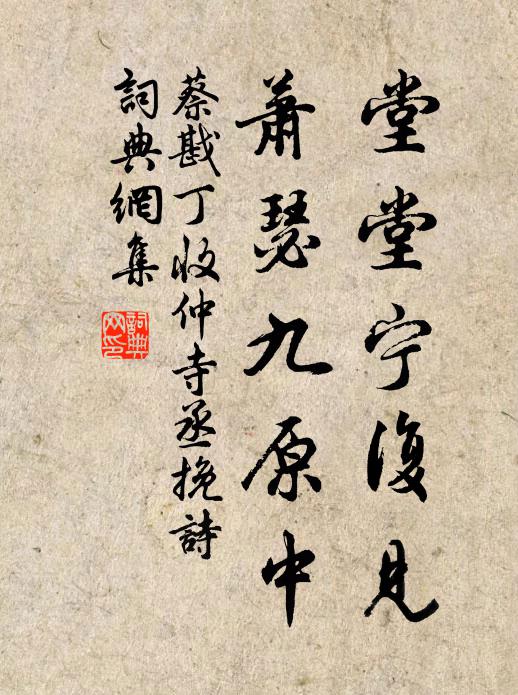 堂堂宁復見
蕭瑟九原中
蔡戡丁收仲寺丞挽詩
詞典網集
詞典网印